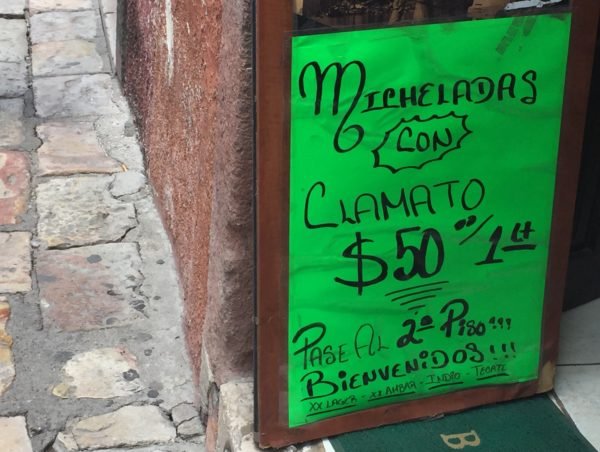 MICHELADAS
CON
CLAMATO
$50 00/1 Lt
PASE AL 2º PISO!!!
BIENVENIDOS!!!
XX LAGER - XX AMBAR - INDIO - TECATE
B